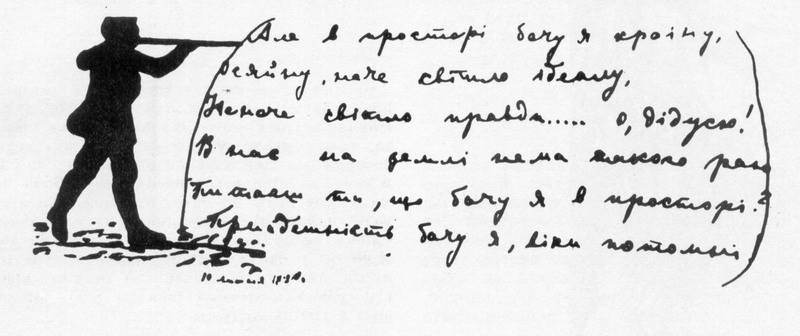 Але в просторі бачу я країну,
Сяйну, наче світило ідеалу,
Неначе світило правди..... О, дідусю!
В нас на землі нема такого раю
Питаєш ти, що бачу я в просторі?
Прийдешність бачу я, віки потомні!
10